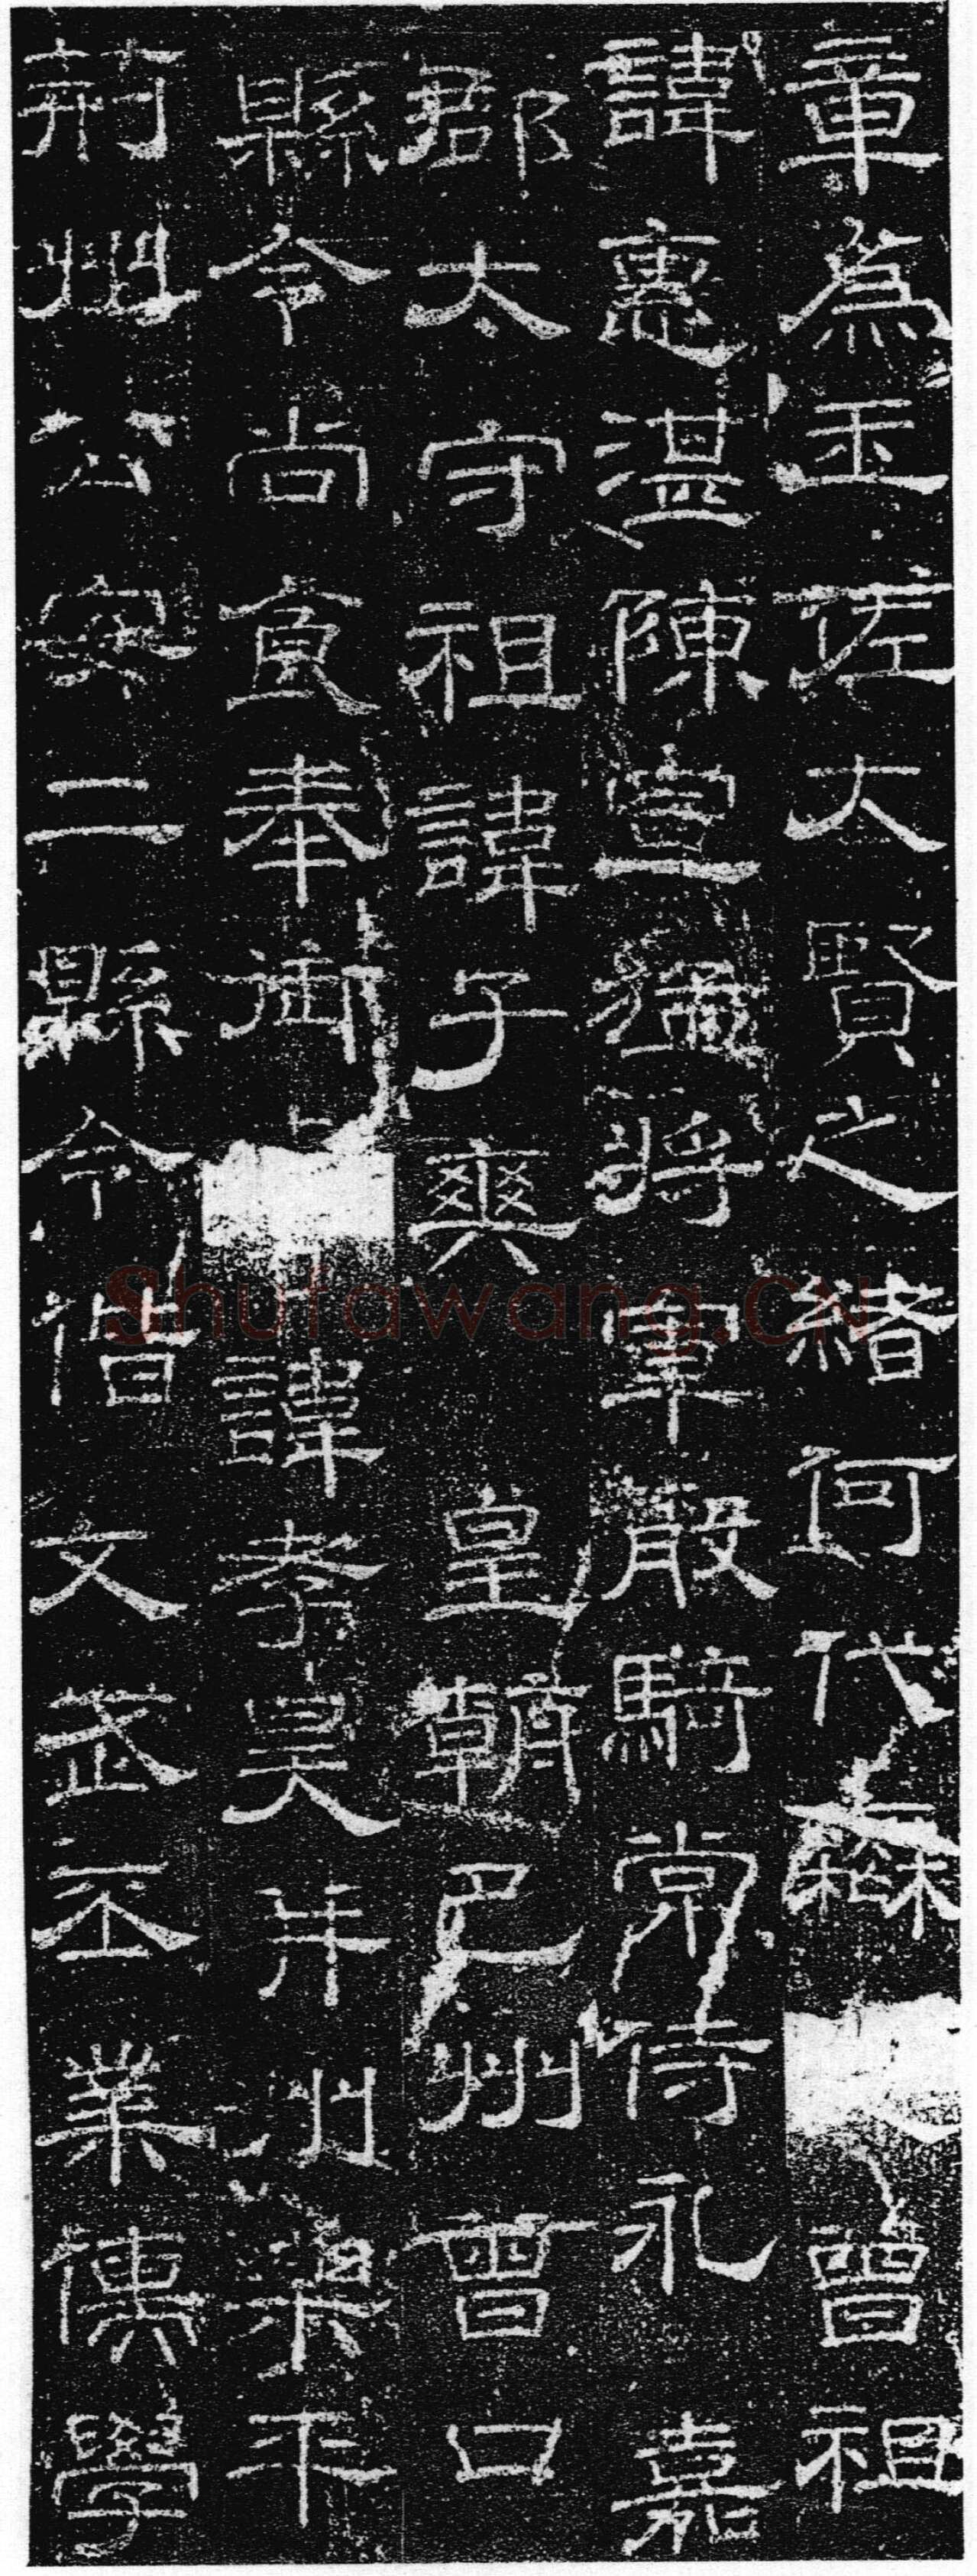 章為王佐大賢之緒何代無曾祖
諱憲湛陳宣猛將軍散騎常侍永嘉
郡太守祖諱子爽皇朝巴州曾口
縣令尚食奉御諱孝昊并州樂平
荊州公安二縣令偕文武丕業儒學
Shufawang.CN